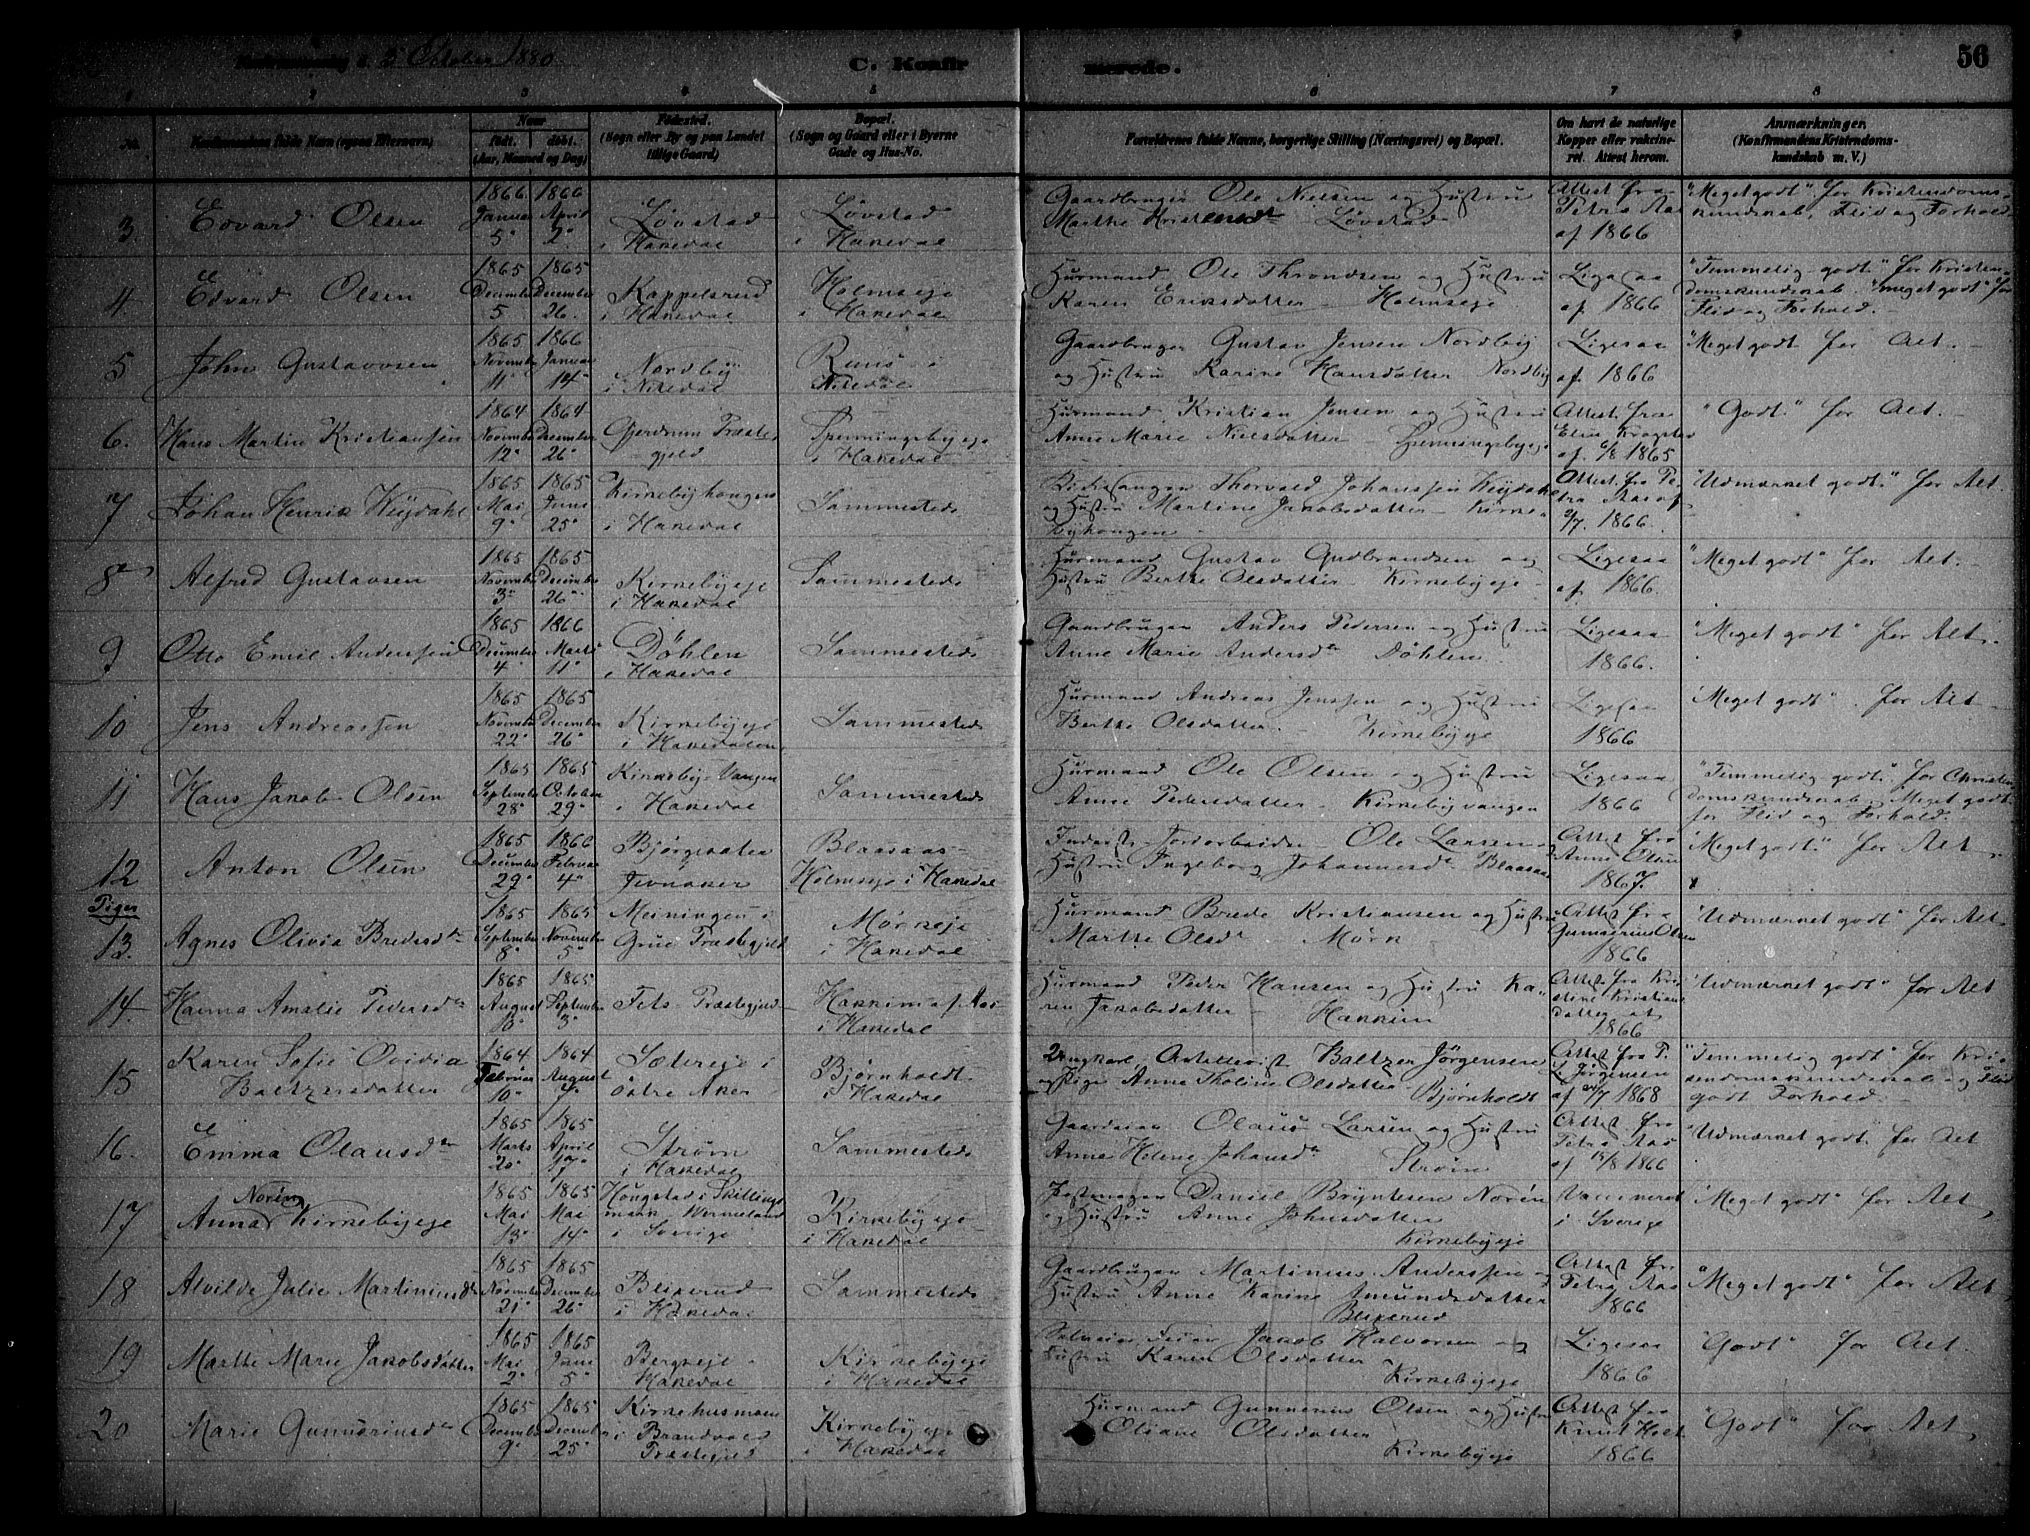 Konfirmationsdag d. 3 October 1880
C. Konfirmerede.
56
1 2 3 4 5 6 7 8
No.
Konfirmandens fulde Navn (ogsaa Efternavn)
Naar
født. døbt.
(Aar, Maaned og Dag)
Fødested.
(Sogn eller By og paa Landet
tillige Gaard)
Bopæl.
(Sogn og Gaard eller i Byerne
Gade og Hus-No.
Forældrenes fulde Navne, borgerlige Stilling (Næringsvei) og Bopæl.
Om havt de naturlige
Kopper eller vakcine-
ret. Attest herom.
Anmærkninger
(Konfirmandens Kristendoms-
kundskab m. V.)
3.
Edvard Olsen
1866 Januar 5
1866 April 2
Løvstad
i Hakedal
Løvstad
i Hakedal
Gaardbruger Ole Nielsen og Hustru
Marthe Kristensdtr Løvstad
Attest fra
Petra Aas
af 1866
"Meget godt" for Kristendoms-
kundskab, Flid og Forhold
4
Edvard Olsen
1865 December 5
1865 December 26.
Kappelsrud
i Hakedal
Holmseje
i Hakedal
Husmand Ole Throndsen og Hustru
Karen Eriksdatter – Holmseje
Ligesaa
af 1866
"Temmelig godt" for Kristen-
domskundskab. "meget godt" for
Flid og Forhold. –
5
John Gustavsen
1865 November 11
1866 Januar 14
Nordby
i Nitedal
Ruus
Nitedal
Gaardbruger Gustav Jensen Nordby
og Hustru Karine Hansdatter Nordby
Ligesaa
af 1866
"Meget godt" for Alt. –
6.
Hans Martin Kristiansen
1864 November 12
1864 December 26
Gjerdrum Præste-
gjeld
Spenningsbyeje
i Hakedal
Husmand Kristian Jensen og Hustru
Anne Marie Nielsdatter – Spenningsbyeje
Attest fra
af 6/8 1865
"Godt" for Alt. –
7
Johan Henrik Heydahl
1865 Mai 9
1865 Juni 25
Kirkebyhougen
i Hakedal
Sammesteds
Kirkesanger Thorvald Johanssen Heydahl
og Hustru Martine Jakobsdatter – Kirke-
byhougen –
Attest fra Pe-
tra Aas af
2/7. 1866.
"Udmærket godt" for Alt.
8
Alfred Gustavsen
1865 November 3
1865 December 26
Kirkebyeje
i Hakedal
Sammesteds
Husmand Gustav Gudbrandsen og
Hustru Berthe Olsdatter Kirkebyeje –
Ligesaa
af 1866.
"Meget godt" for Alt. –
9
Otto Emil Anderssen
1865 December 4
1866 Marts 11
Døhlen
i Hakedal
Sammesteds
Gaardbruger Anders Pedersen og Hustru
Anne Marie Andersdtr Døhlen
Ligesaa
1866.
"Meget godt" for Alt.
10
Jens Andreassen
1865 November 22
1865 December 26
Kirkebyeje
i Hakedalen
Sammesteds
Husmand Andreas Jenssen og Hustru
Berthe Olsdatter. – Kirkebyeje
Ligesaa
1866
"Meget godt" for Alt –
11
Hans Jakob Olsen
1865 September 28
1865 October 29
Kirkeby-Vangen
i Hakedal
Sammesteds
Husmand Ole Olsen og Hustru
Anne Pedersdatter – Kirkebyvangen
Ligesaa
1866
"Temmelig godt" for Christen-
domskundskab. Meget godt
for Flid og Forhold. –
12
Anton Olsen
1865 December 29
1866 Februar 4
Bjørgesæter
Jevnaker
Blaasaas-
Holmseje i Hakedal
Inderst – Jordarbeider – Ole Larsen og
Hustru Ingeborg Johannesdtr Blaasaas
Attest fra
Anne Olsen
1867.
"Meget godt" for Alt –
Piger
13.
Agnes Olivia Bredesdtr
1865 September 8
1865 November 5
Meiningen i
Grue Præstegjeld
Mørkeje
i Hakedal
Husmand Brede Kristiansen og Hustru
Marthe Olsdtr Mørk
Attest fra
Gunnerius Olsen
1866
"Udmærket godt" for Alt.
14
Hanna Amalie Pedersdtr
1865 August 10
1865 September 3
Fets Præstegjeld
i Hakedal
Husmand Peder Hansen og Hustru Ka-
ren Jakobsdatter – Hakkim
Attest fra Kri-
stine Kristians-
datter af
1866
"Udmærket godt" for Alt
15
Karen Sofie Ovidia
Baltzersdatter
1864 Februar 10
1864 August 7
Sætereje i
østre Aker
Bjørnholdt
i Hakedal
Ungkarl Baltzer Jørgensen
og Pige Anne Tholine Olsdatter
Bjørnholdt
Attest fra P.
L. Jørgensen
af 1868
"Temmelig godt" for Kri-
stendomskundskab og Flid
godt Forhold. –
16.
Emma Olausdtr
1865 Marts 20
1865 April 17
Strøm
i Hakedal
Sammesteds
Gaardeier Olaus Larsen og Hustru
Anne Helene Johansdtr Strøm
Attest fra
Petra Aas
af 15/8 1866
"Udmærket godt" for Alt
17
Anna Norén Kirkebyeje
1865 Mai 13
1865 Mai 14
Hougstad i Skillings-
mark Wermeland
i Sverige
Kirkebyeje
i Hakedal
Daniel Bryntesen Norén
og Hustru Anne Johnsdatter
Kirkebyeje
Vaccineret
i Sverige
"Meget godt" for Alt,
18
Alvilde Julie Martiniusdtr
1865 November 21
1865 December 26
Blikerud
i Hakedal
Sammesteds
Gaardbruger Martinius Anderssen og
Hustru Anne Karine Amundsdatter
Blikerud
Attest fra
Petra Aas
1866
"Meget godt" for Alt,
19
Marthe Marie Jakobsdatter
1865 Mai 2
1865 Juni 5
Bergseje
Hakedal
Kirkebyeje
i Hakedal
Jakob Halvorsen og
Hustru Karen Olsdatter
Kirkebyeje
Ligesaa
1866
"Godt" for Alt.
20
Marie Gunneriusdtr
1865 December 9
1865 December 25
i Brandvold
Præstegjeld
Kirkebyeje
i Hakedal
Husmand Gunnerius Olsen og Hustru
Oliane Olsdatter
Kirkebyeje
Attest fra
Knut Holt
1866
"Godt" for Alt,